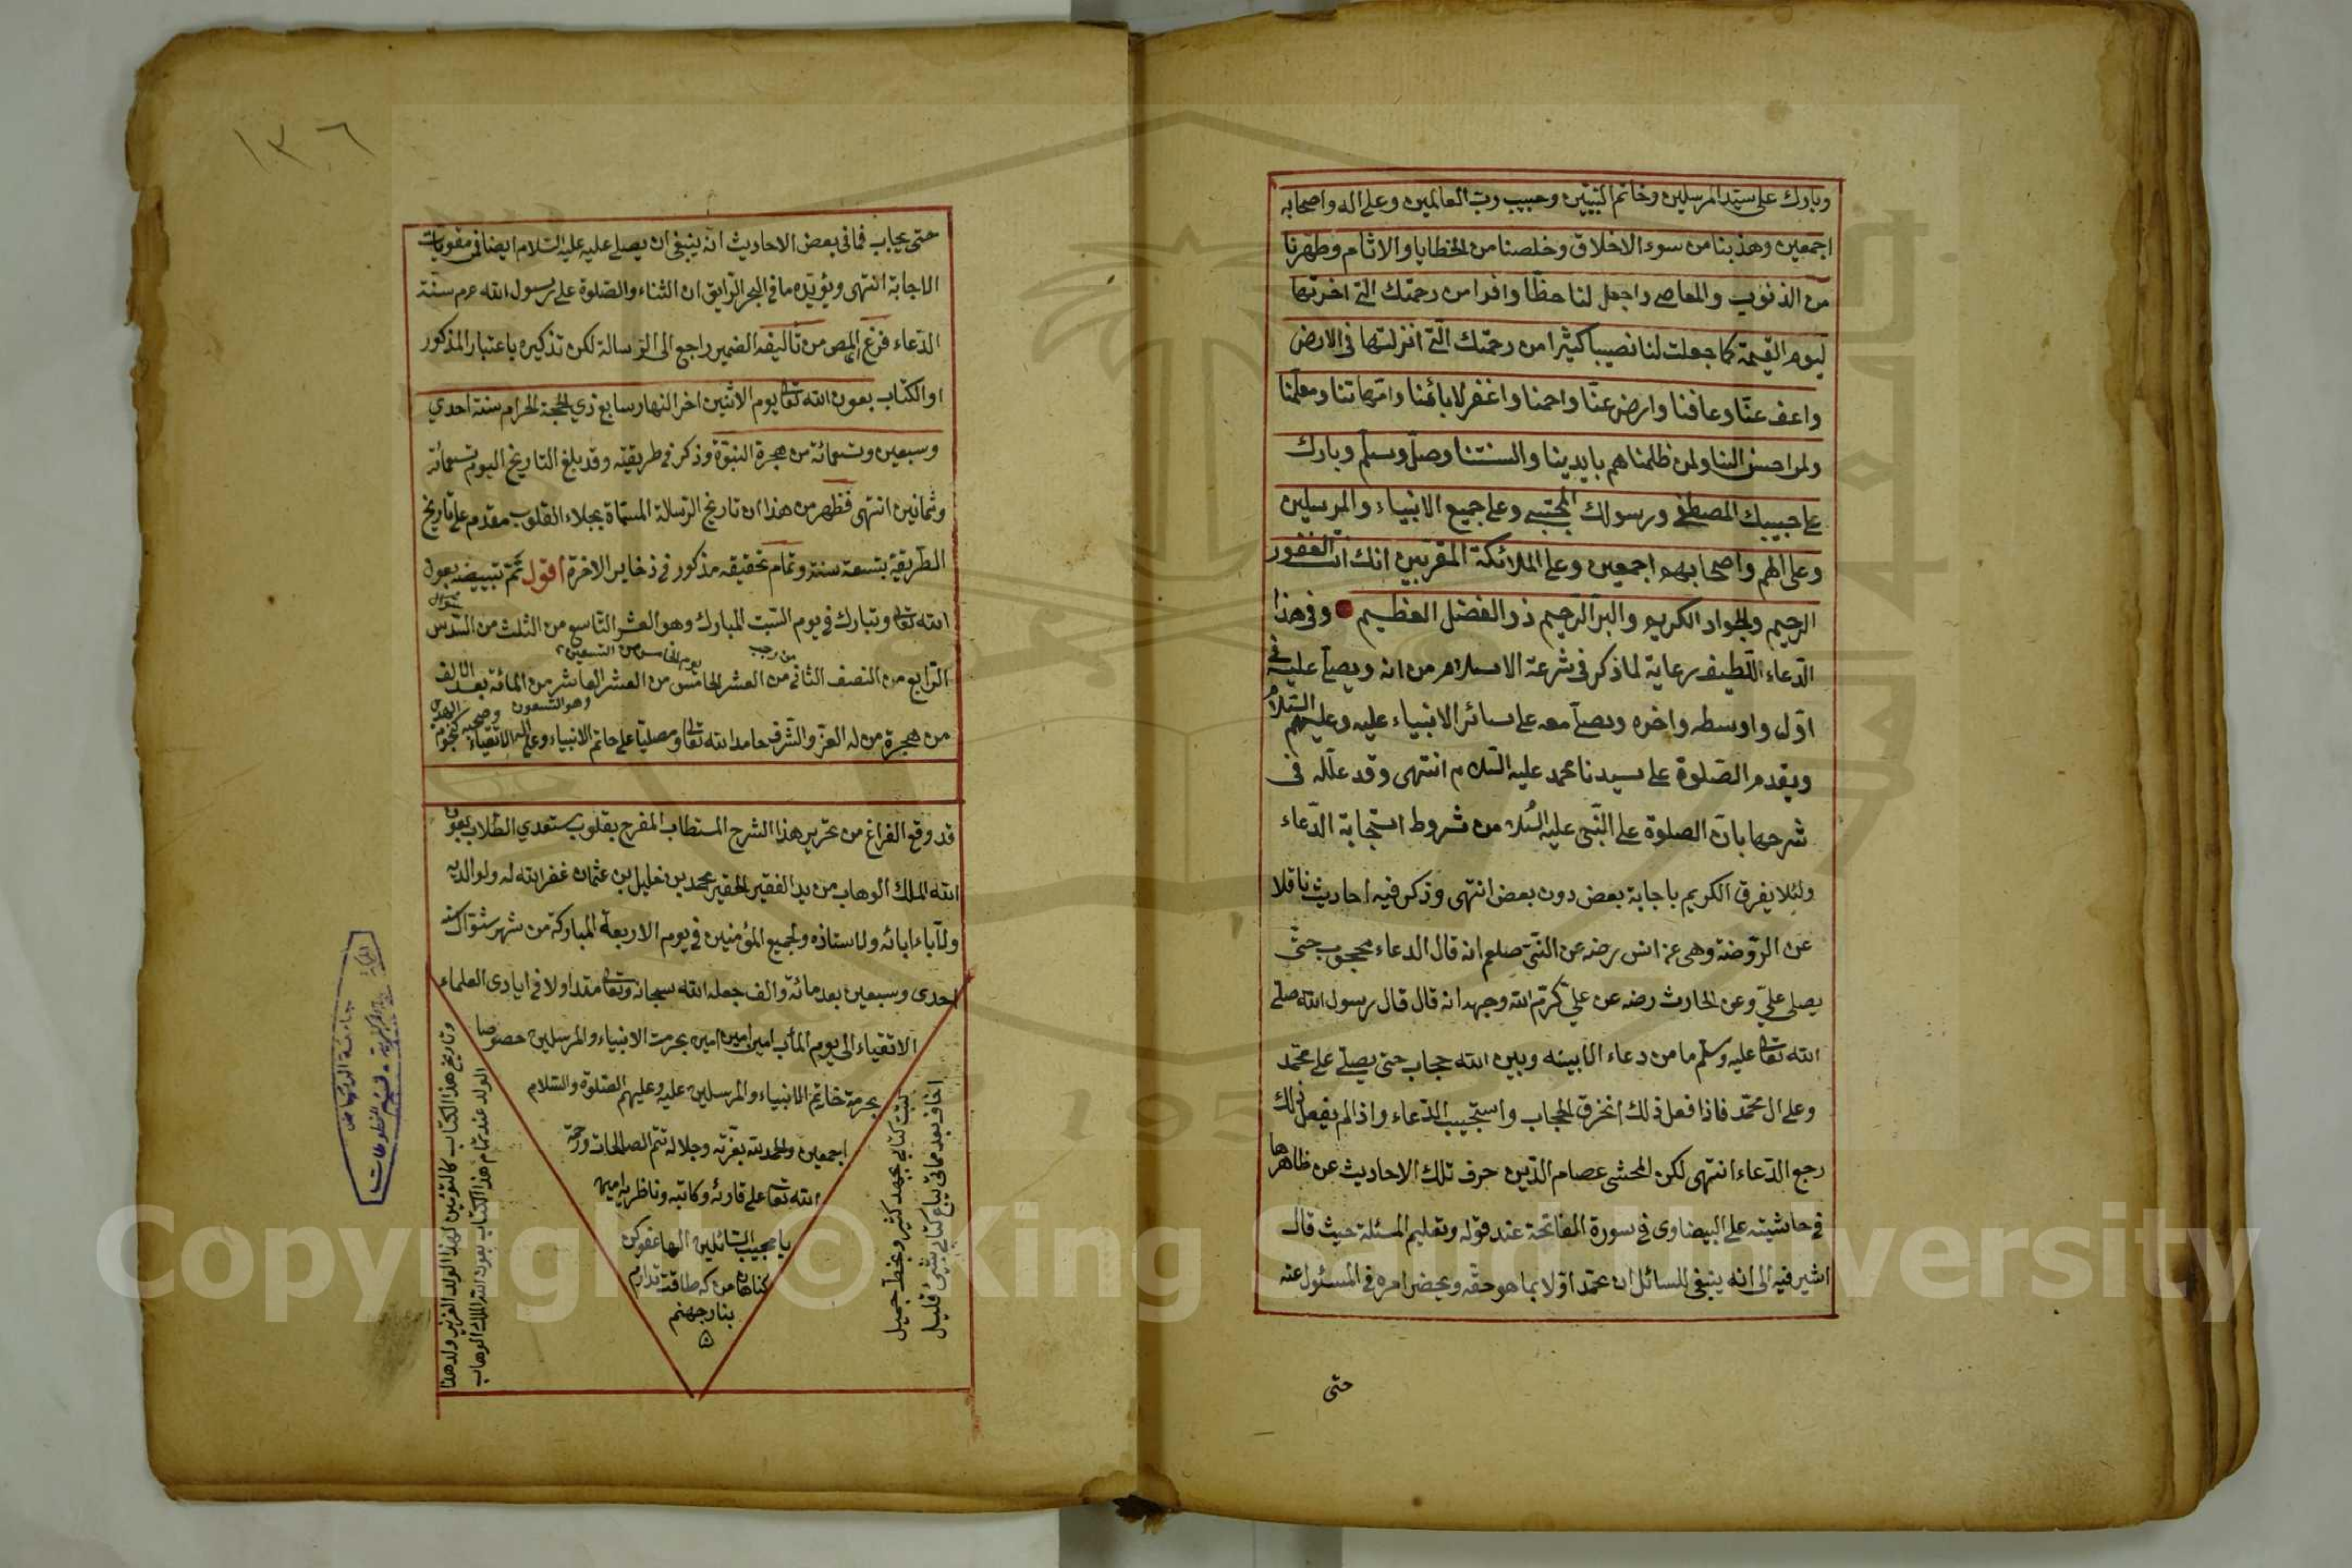 وبارك على سيد المرسلين وخاتم النبيين وحبيب رب العالمين وعلى اله واصحابه
اجمعين وهذبنا من سوء الاخلاق وخلصنا من الخطايا والاثام وطهرنا
من الذنوب والمعاصى واجعل لنا حظا وافرا من رحمتك التى اخرتها
ليوم القيمة كما جعلت لنا نصيبا كثيرا من رحمتك التى انزلتها فى الارض
واعف عنا وعافنا وارض عنا وارحمنا واغفر لابائنا وامهاتنا ومعلمنا
ولمن احسن الينا ولمن ظلمناهم بايدينا والسنتنا وصل وسلم وبارك
على حبيبك المصطفى ورسولك المجتبى وعلى جميع الانبياء والمرسلين
وعلى الهم واصحابهم اجمعين وعلى الملائكة المقربين انك انت الغفور
الرحيم والجواد الكريم والبر الرحيم ذو الفضل العظيم وفى هذا
الدعاء اللطيف رعاية لما ذكر فى شرعة الاسلام من انه ويصلى عليه فى
اول واوسطه واخره ويصلى معه على سائر الانبياء عليه وعليهم السلام
ويقدم الصلوة على سيدنا محمد عليه السلام انتهى وقد علله فى
شرحها بان الصلوة على النبى عليه السلام من شروط استجابة الدعاء
ولئلا يفرق الكريم باجابة بعض دون بعض انتهى وذكر فيه احاديث ناقلا
عن الروضة وهى عن انس رضه عن النبى صلعم انه قال الدعاء محجوب حتى
يصلى على وعن الحارث رضه عن على كرم الله وجهه انه قال قال رسول الله صلى
الله تعالى عليه وسلم ما من دعاء الا بينه وبين الله حجاب حتى يصلى على محمد
وعلى ال محمد فاذا فعل ذلك انخرق الحجاب واستجيب الدعاء واذا لم يفعل ذلك
رجع الدعاء انتهى لكن المحشى عصام الدين حرف تلك الاحاديث عن ظاهرها
فى حاشيته على البيضاوى فى سورة الفاتحة عند قوله وتعليم المسئلة حيث قال
اشير فيه الى انه ينبغى للسائل ان يحمد اولا بما هو حقه ويحضر امره فى المسئول عنه
حتى
١٣٦
حتى يجاب فما فى بعض الاحاديث انه ينبغى ان يصلى عليه عليه السلام ايضا فمن مقويات
الاجابة انتهى ويؤيده ما فى البحر الرايق ان الثناء والصلوة على رسول الله عم سنة
الدعاء فرغ المص من تأليفه الضمير راجع الى الرسالة لكن تذكيره باعتبار المذكور
او الكتاب بعون الله تعالى يوم الاثنين اخر النهار سابع ذي الحجة الحرام سنة احدي
وسبعين وتسمائة من هجرة النبوة وذكر فى طريقيته وقد بلغ التاريخ اليوم تسمائة
وثمانين انتهى فظهر من هذا ان تاريخ الرسالة المسماة بجلاء القلوب مقدم على تاريخ
الطريقة بتسعة سنة وتمام تحقيقه مذكور فى ذخاير الاخرة اقول تم تبييضه بعون
الله تعالى وتبارك فى يوم السبت المبارك وهو العشر التاسع من الثلث من السدس
من رجب يوم الخامس من التسعين
الرابع من النصف الثانى من العشر الخامس من العشر العاشر من المائة بعد الالف
وهو التسعون
من هجرة من له العز والشرف حامدا لله تعالى ومصليا على خاتم الانبياء وعلى اله الاتقياء وصحبه كنجوم الهدى
قد وقع الفراغ من تحرير هذا الشرح المستطاب المفرح بقلوب مستعدي الطلاب بعون
الله الملك الوهاب من يد الفقير الحقير محمد بن خليل بن عثمان غفر الله له ولوالديه
ولآباء ابائه ولاستاذه ولجميع المؤمنين فى يوم الاربعة المباركة من شهر شوال سنه
احدى وسبعين بعد مائة والف جعله الله سبحانه وتعالى متداولا فى ايادى العلماء
الاتقياء الى يوم المأب امين امين امين بحرمت الانبياء والمرسلين خصوصا
بحرمة خاتم الانبياء والمرسلين عليه وعليهم الصلوة والسلام
اجمعين والحمد لله بعزته وجلاله تتم الصالحات ورحمة
الله تعالى على قارئه وكاتبه وناظريه امين
يا مجيب السائلين الها عفو كن
كناهم من كه طاقة ندارم
بنار جهنم
كتبت كتابى بجهد كثير وبخط جميل
اخاف بعد مماتى تباع كتابى بشىء قليل
وتاريخ هذا الكتاب
الولد عند تمام هذا الكتاب بعون الله الملك الوهاب
جامعة الرياض
قسم المخطوطات
Copyright © King Saud University
195